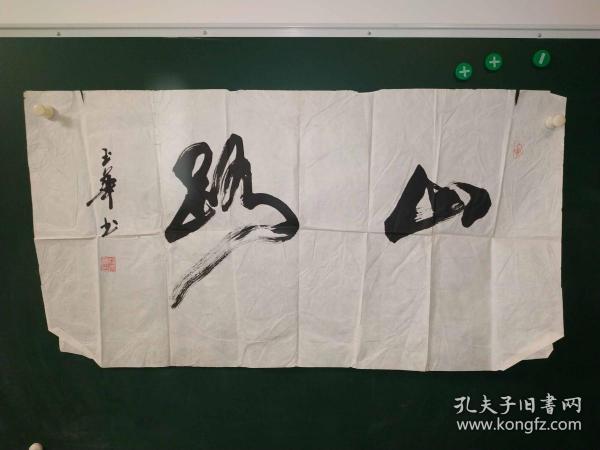 山路
玉华书
孔夫子旧书网
www.kongfz.com